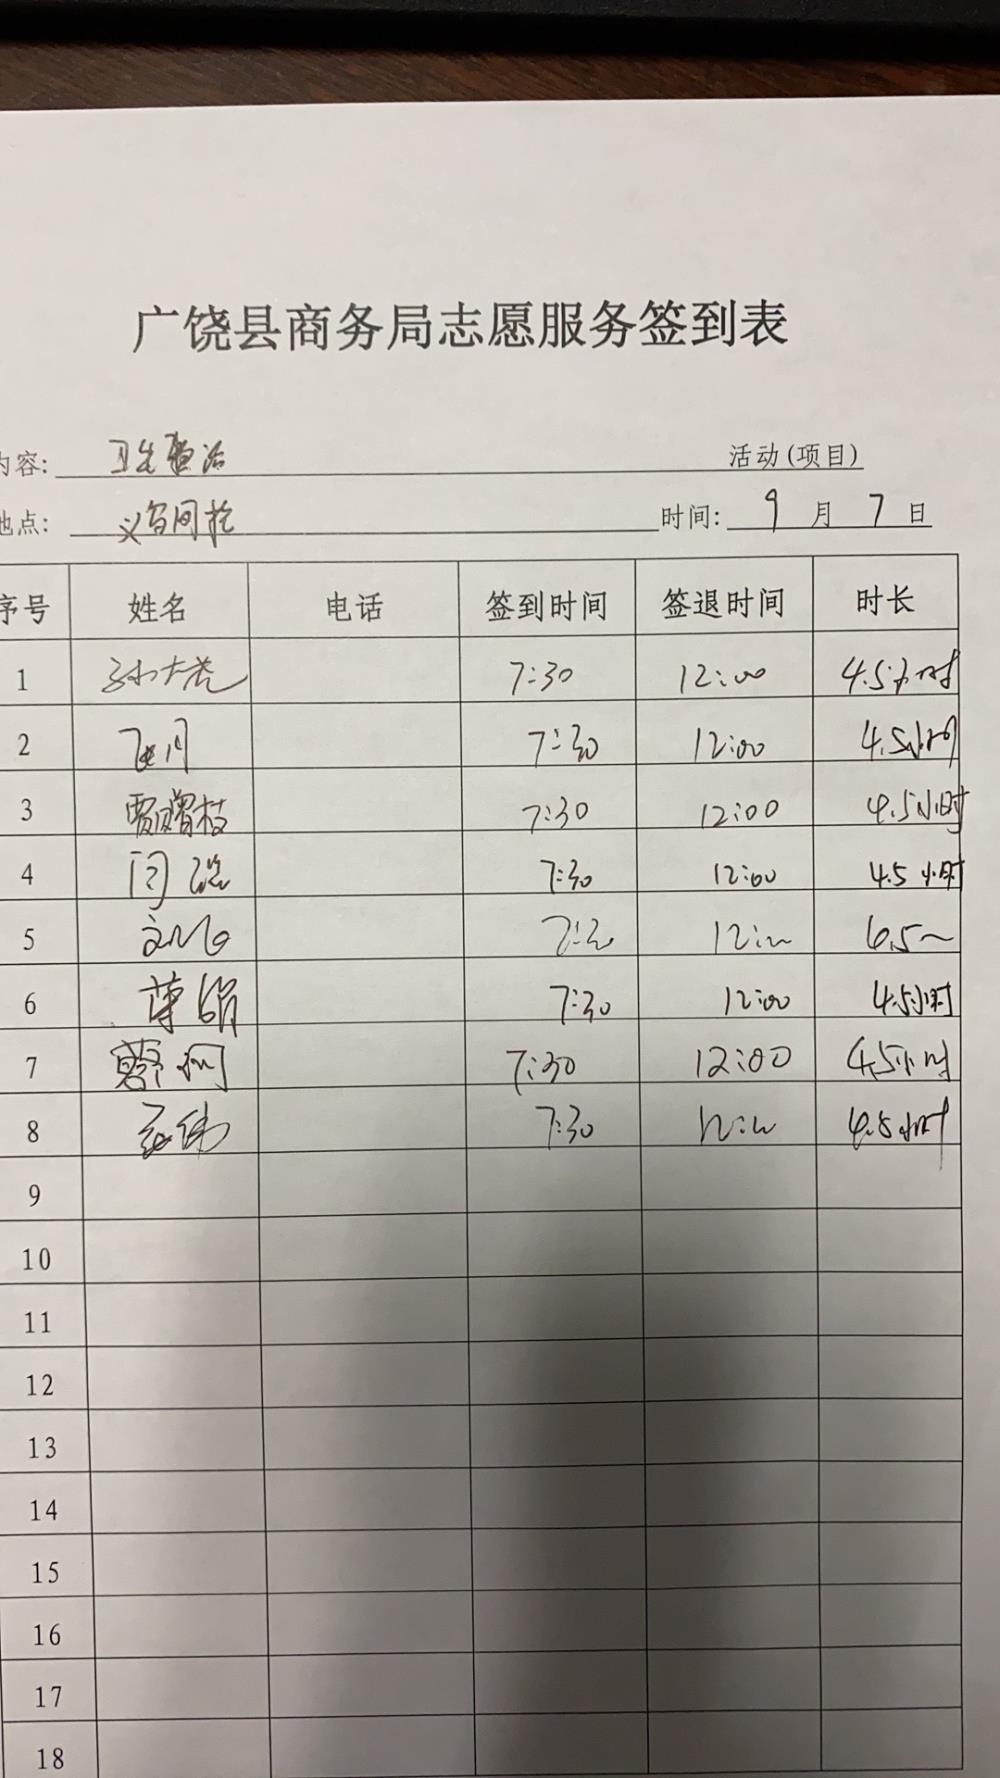 广饶县商务局志愿服务签到表
内容: 卫生整治 活动(项目)
地点: 时间: 9月7日
序号 姓名 电话 签到时间 签退时间 时长
1 7:30 12:00 4.5小时
2 7:30 12:00 4.5小时
3 贾增枝 7:30 12:00 4.5小时
4 7:30 12:00 4.5小时
5
6 7:30 12:00 4.5小时
7 7:30 12:00 4.5小时
8 7:30 4.5小时
9
10
11
12
13
14
15
16
17
18